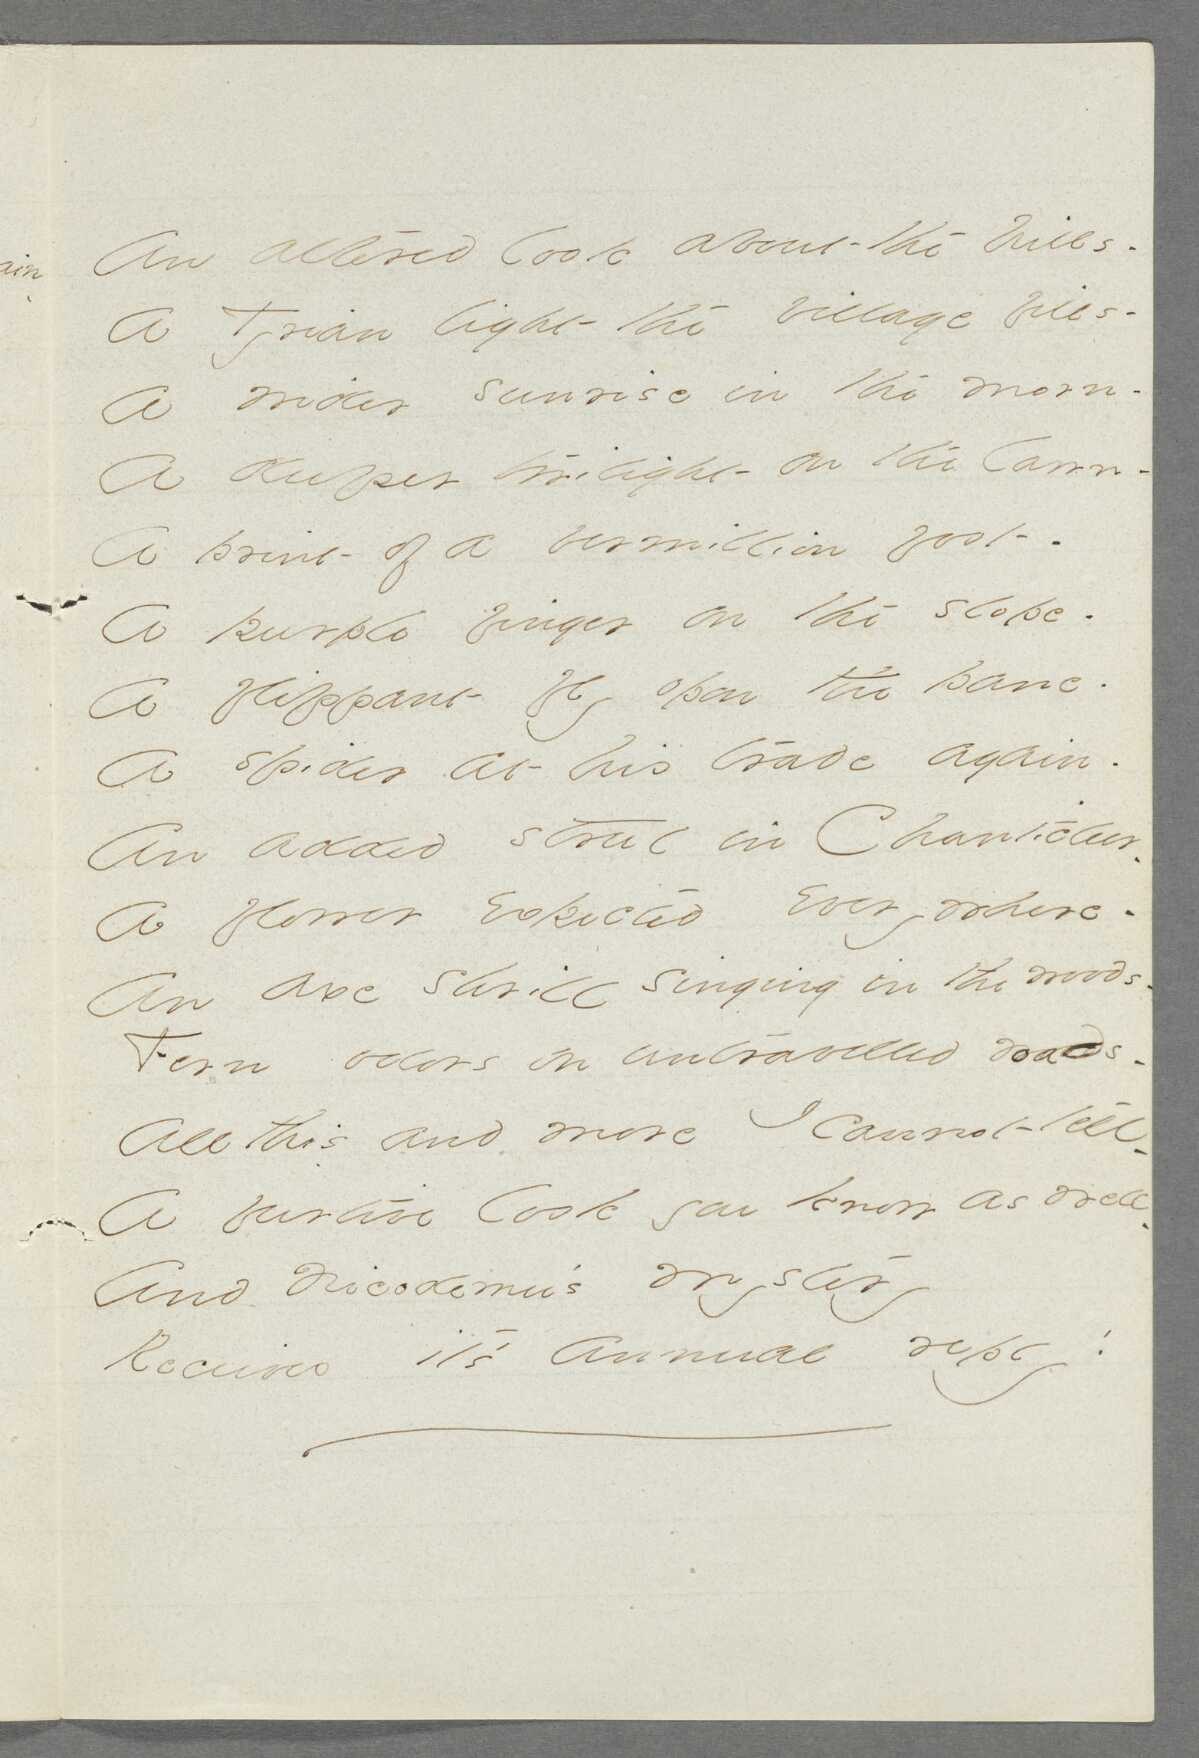 ain
An altered look about the hills -
A Tyrian light the village fills -
A wider sunrise in the morn -
A deeper twilight on the lawn -
A print of a vermillion foot -
A purple finger on the slope -
A flippant fly opon the pane -
A spider at his trade again -
An added strut in Chanticleer -
A flower expected everywhere -
An axe shrill singing in the woods -
Fern odors on untravelled roads -
All this and more I cannot tell -
A furtive look you know as well -
And Nicodemus' Mystery
Receives it's annual reply!